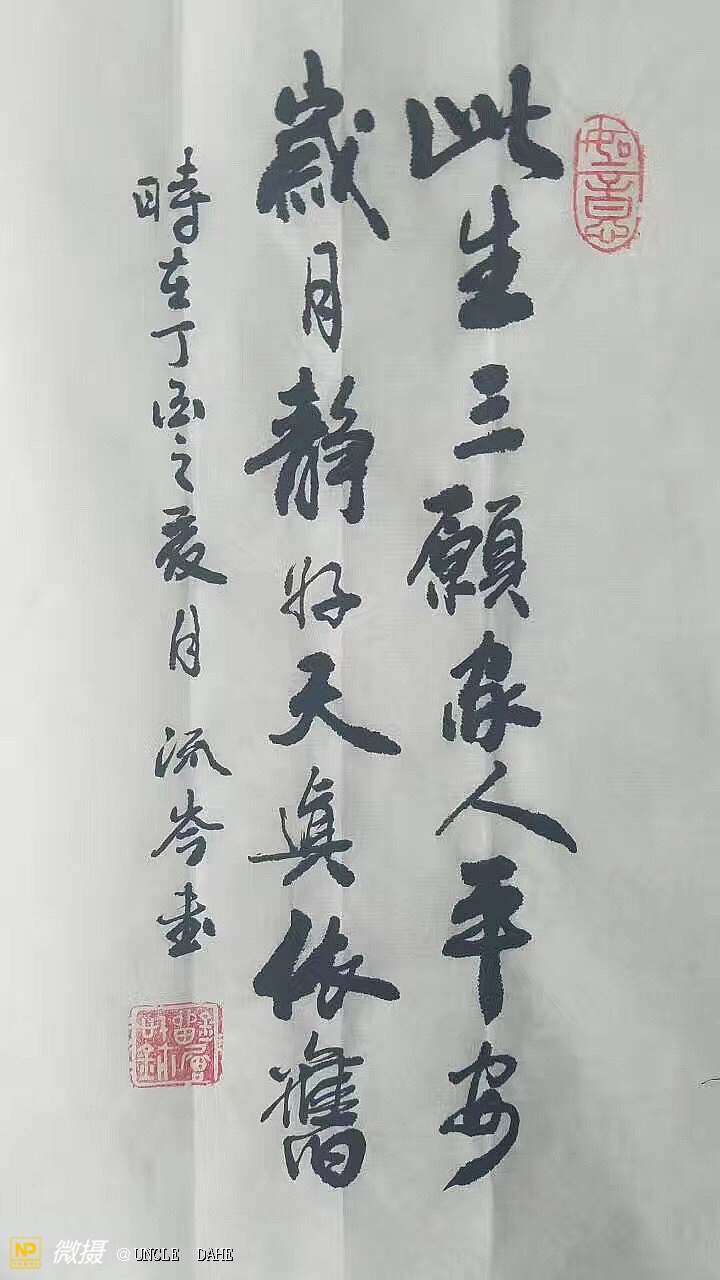 如意
此生三願家人平安
歲月靜好天真依舊
時在丁酉之夏月 流岑書
NP 微摄 @UNCLE DAHE